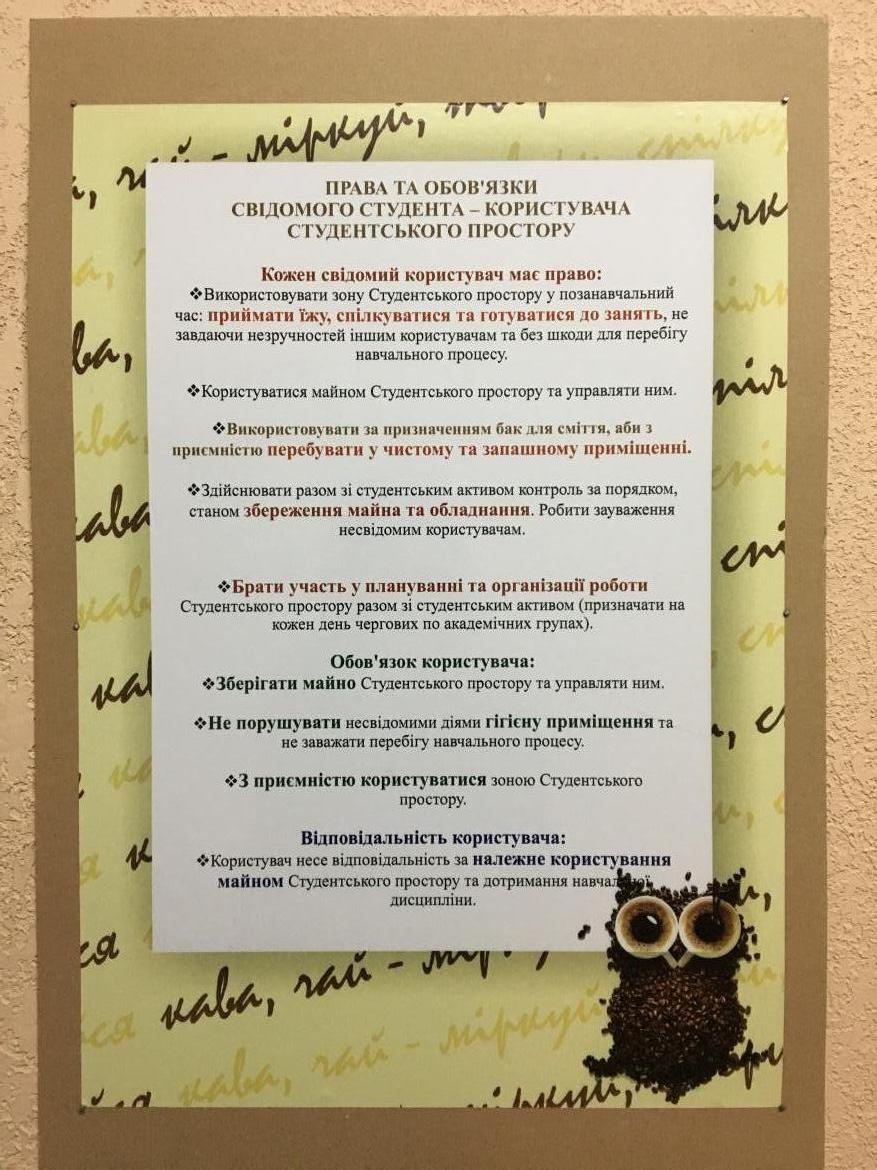 ча, чай - міркуй,
ПРАВА ТА ОБОВ'ЯЗКИ
СВІДОМОГО СТУДЕНТА – КОРИСТУВАЧА
СТУДЕНТСЬКОГО ПРОСТОРУ
Кожен свідомий користувач має право:
❖Використовувати зону Студентського простору у позанавчальний
час: приймати їжу, спілкуватися та готуватися до занять, не
завдаючи незручностей іншим користувачам та без шкоди для перебігу
навчального процесу.
❖Користуватися майном Студентського простору та управляти ним.
❖Використовувати за призначенням бак для сміття, аби з
приємністю перебувати у чистому та запашному приміщенні.
❖Здійснювати разом зі студентським активом контроль за порядком,
станом збереження майна та обладнання. Робити зауваження
несвідомим користувачам.
❖Брати участь у плануванні та організації роботи
Студентського простору разом зі студентським активом (призначати на
кожен день чергових по академічних групах).
Обов'язок користувача:
❖Зберігати майно Студентського простору та управляти ним.
❖Не порушувати несвідомими діями гігієну приміщення та
не заважати перебігу навчального процесу.
❖З приємністю користуватися зоною Студентського
простору.
Відповідальність користувача:
❖Користувач несе відповідальність за належне користування
майном Студентського простору та дотримання навчальної
дисципліни.
ся кава, чай -
ся кава, чай - міркуй